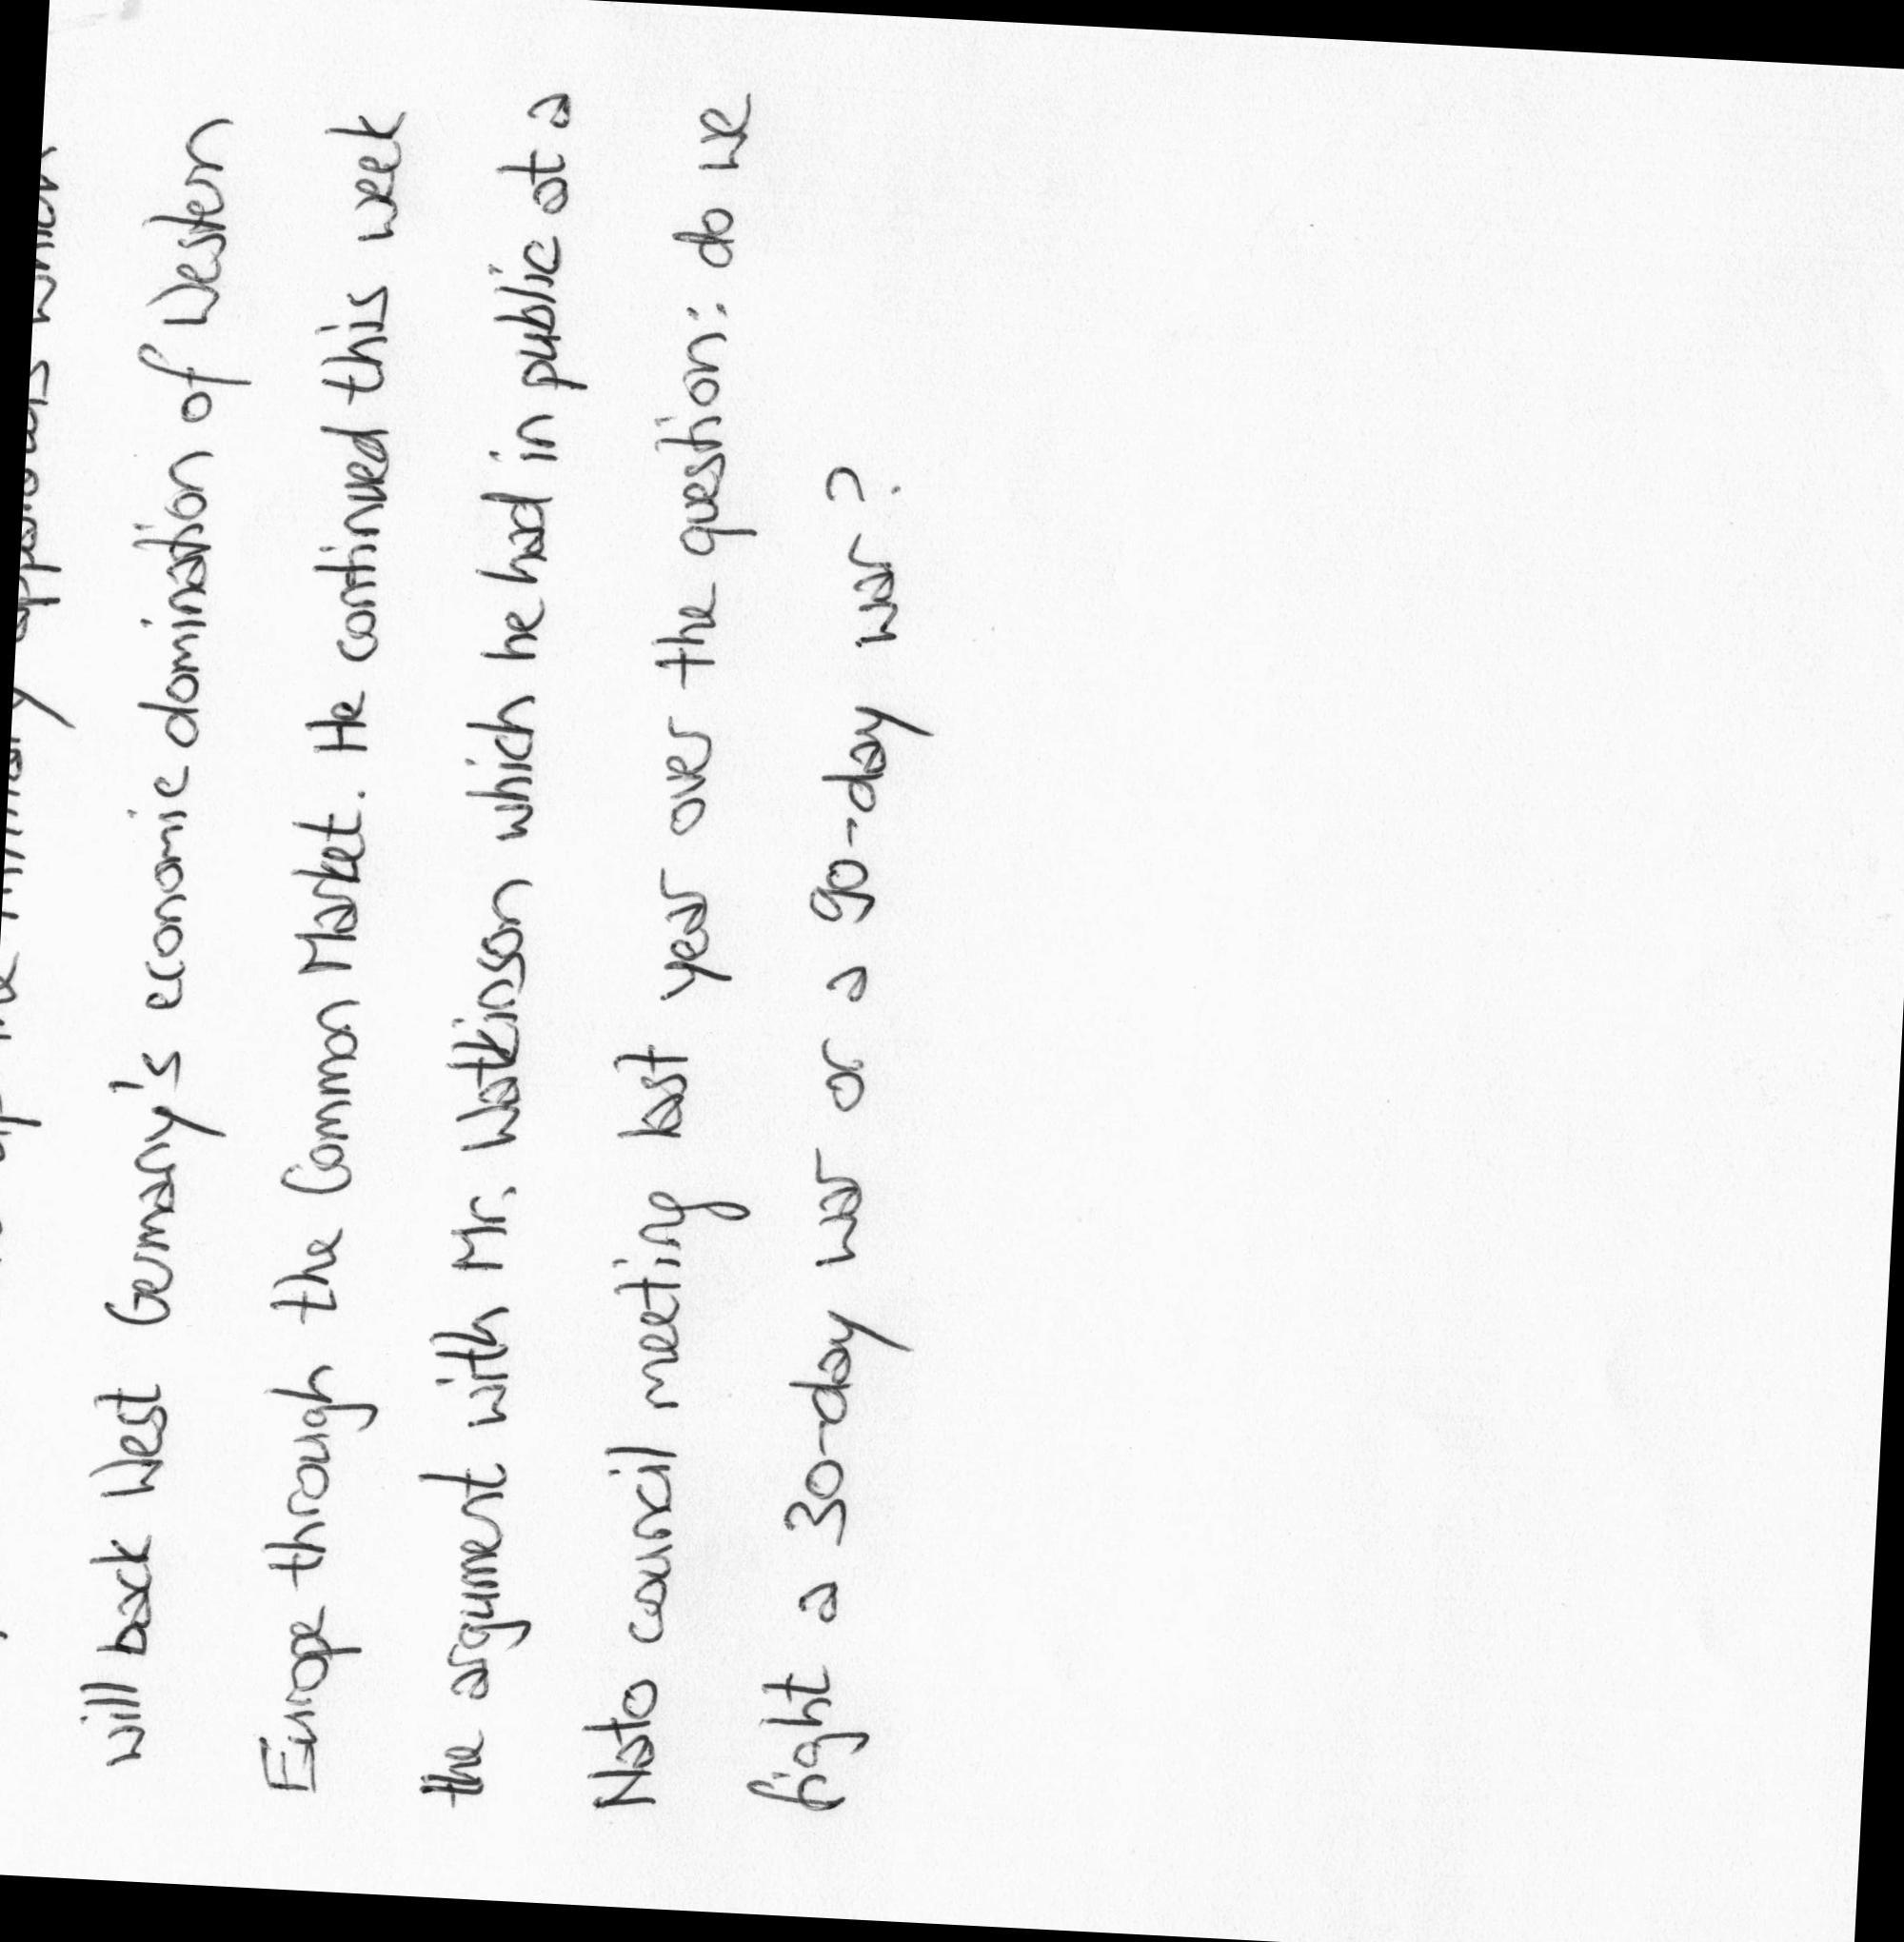 which
will back West Germany's economic domination of Western
Europe through the Common Market. He continued this week
the argument with Mr. Watkinson which he had in public at a
Nato council meeting last year over the question: do we
fight a 30-day war or a 90-day war?